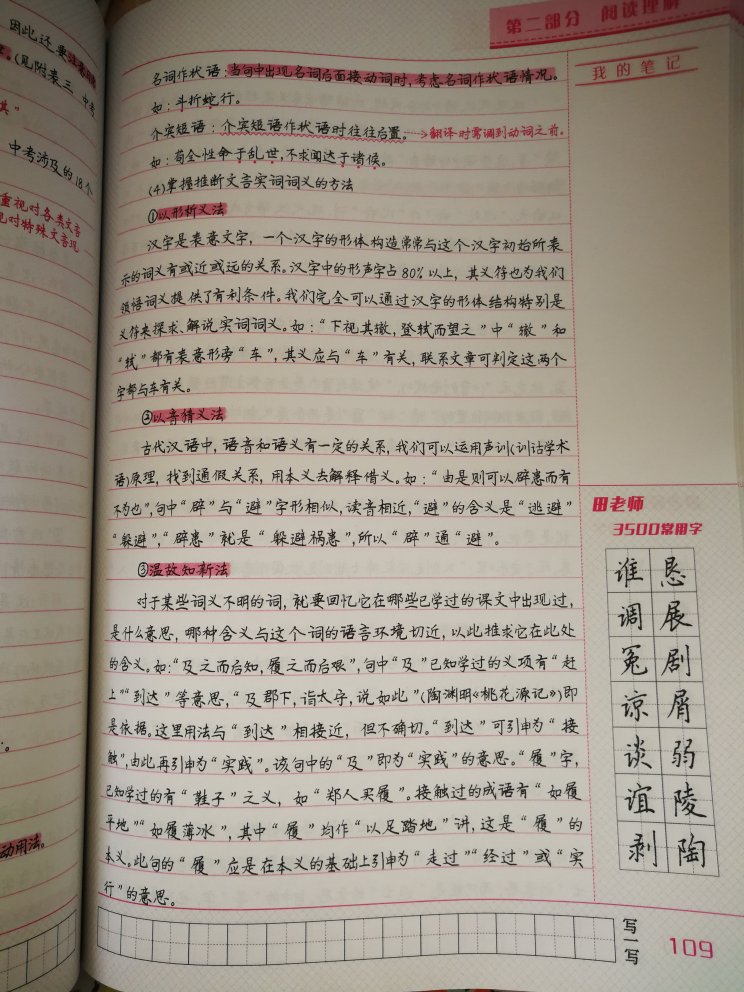 因此还要注意
。(见附表三 中考
其"
中考涉及的18个
重视对各类文言
对特殊文言现
动用法。
第二部分 阅读理解
我的笔记
名词作状语:当句中出现名词后面接动词时,考虑名词作状语情况。
如:斗折蛇行。
介宾短语:介宾短语作状语时往往后置。→翻译时需调到动词之前。
如:苟全性命于乱世,不求闻达于诸侯。
(4)掌握推断文言实词词义的方法
①以形析义法
汉字是表意文字,一个汉字的形体构造常常与这个汉字初始所表
示的词义有或近或远的关系。汉字中的形声字占80%以上,其义符也为我们
领悟词义提供了有利条件。我们完全可以通过汉字的形体结构特别是
义符来探求、解说实词词义。如:“下视其辙,登轼而望之”中“辙”和
“轼”都有表意形旁“车”,其义应与“车”有关,联系文章可判定这两个
字都与车有关。
②以音猜义法
古代汉语中,语音和语义有一定的关系,我们可以运用声训(训诂学术
语)原理,找到通假关系,用本义去解释借义。如:“由是则可以辟患而有
不为也”,句中“辟”与“避”字形相似,读音相近,“避”的含义是“逃避”
“躲避”,“辟患”就是“躲避祸患”,所以“辟”通“避”。
③温故知新法
对于某些词义不明的词,就要回忆它在哪些已学过的课文中出现过,
是什么意思,哪种含义与这个词的语言环境切近,以此推求它在此处
的含义。如:“及之而后知,履之而后艰”,句中“及”已知学过的义项有“赶
上”“到达”等意思,“及郡下,诣太守,说如此”(陶渊明《桃花源记》)即
是依据。这里用法与“到达”相接近,但不确切。“到达”可引申为“接
触”,由此再引申为“实践”。该句中的“及”即为“实践”的意思。“履”字,
已知学过的有“鞋子”之义,如“郑人买履”。接触过的成语有“如履
平地”“如履薄冰”,其中“履”均作“以足踏地”讲,这是“履”的
本义。此句的“履”应是在本义的基础上引申为“走过”“经过”或“实
行”的意思。
田老师
3500常用字
谁 恳
调 展
冤 剧
谅 屑
谈 弱
谊 陵
剥 陶
写一写
109